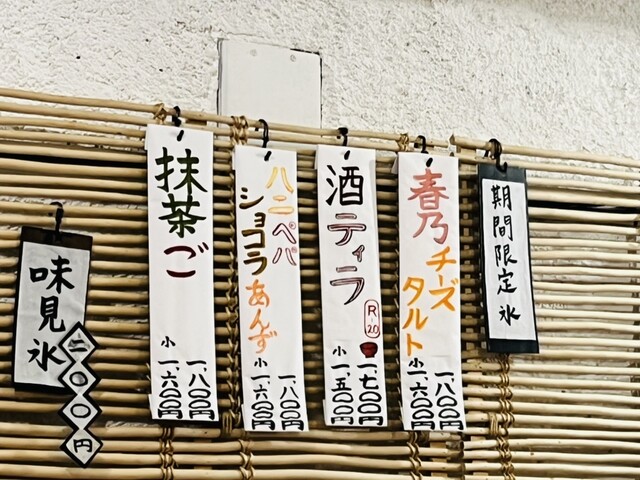 期間限定氷
春乃
チーズ
タルト
一、八〇〇円
小一、六〇〇円
酒ティラ
R-20
一、七〇〇円
小一、五〇〇円
ハニペパ
ショコラあんず
一、八〇〇円
小一、六〇〇円
抹茶ご
一、八〇〇円
小一、六〇〇円
味見氷
二〇〇円